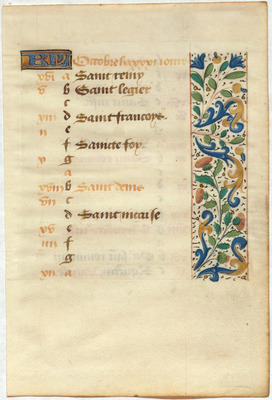 KL Octobre ha xxxi iours
xvi a Saint remy
v b Saint legier
c
xiii d Saint francoys
ii e
f Sainte foy
x g
a
xviii b Saint denis
vii c
d Saint nicaise
xv e
iiii f
g
xii a